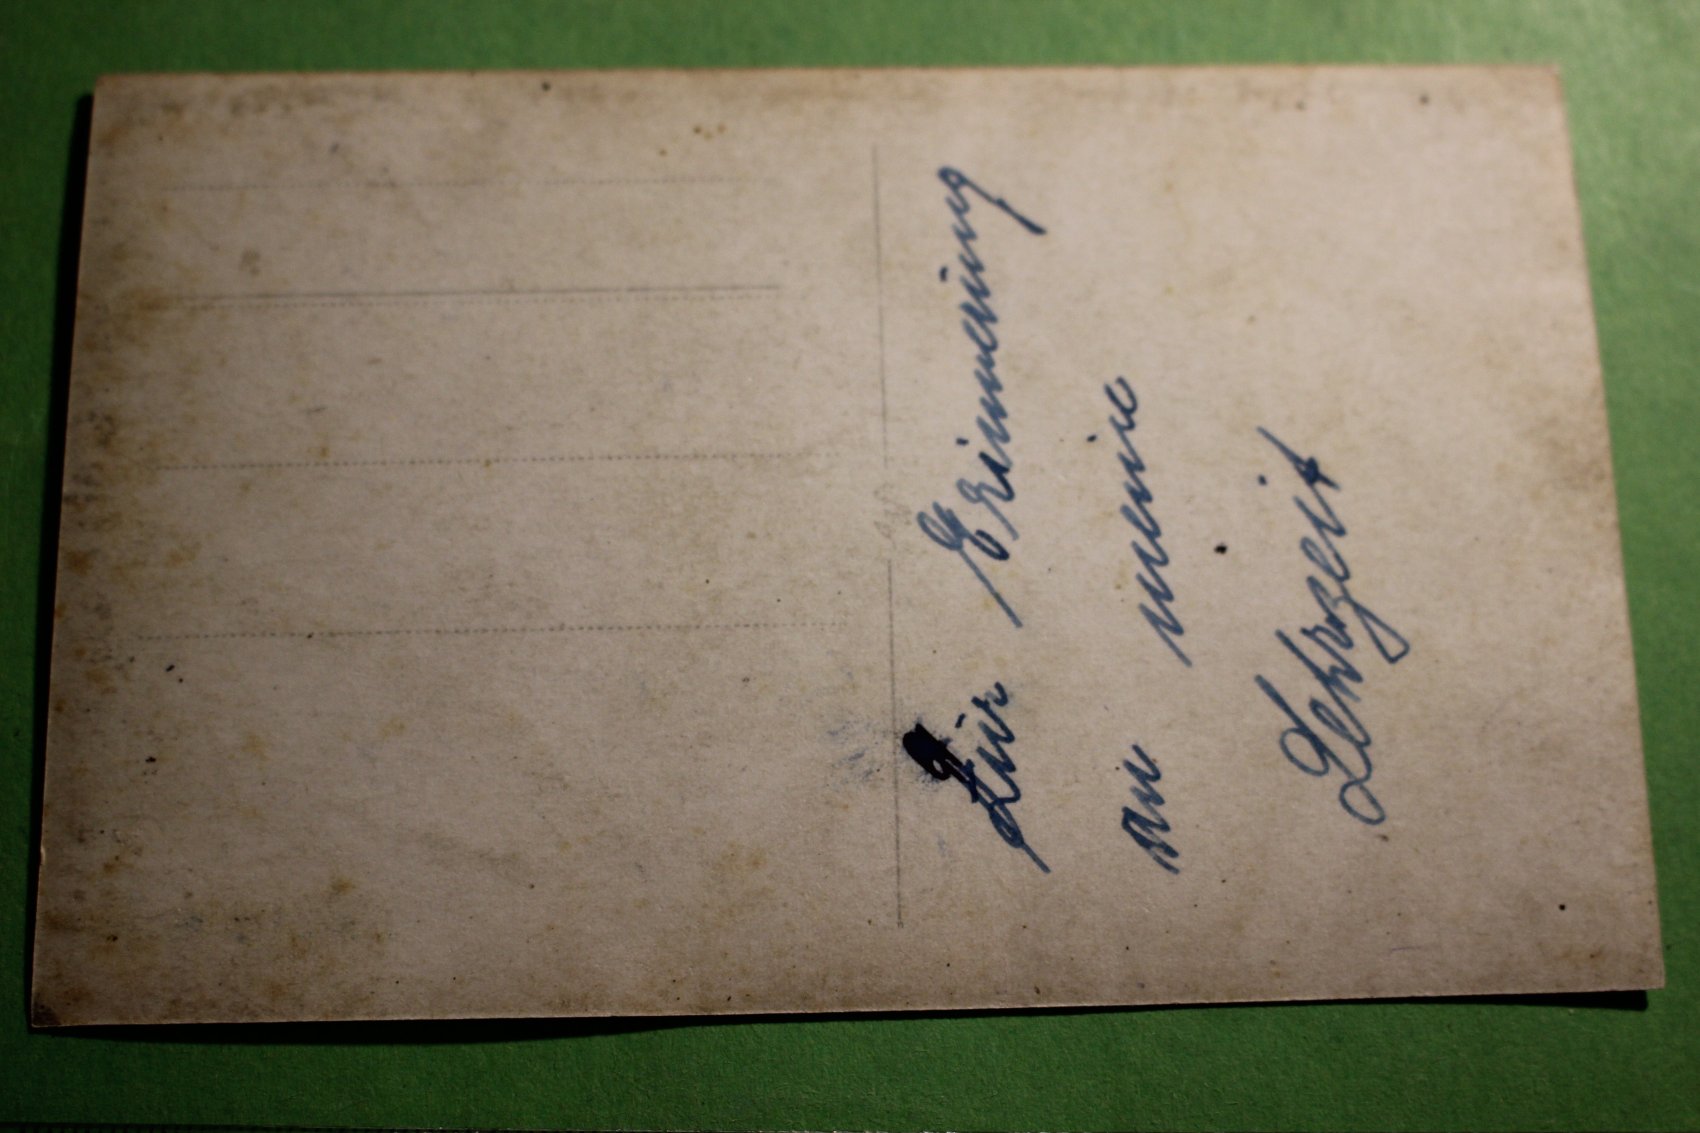 Zur Erinnerung
an meine
Lehrzeit